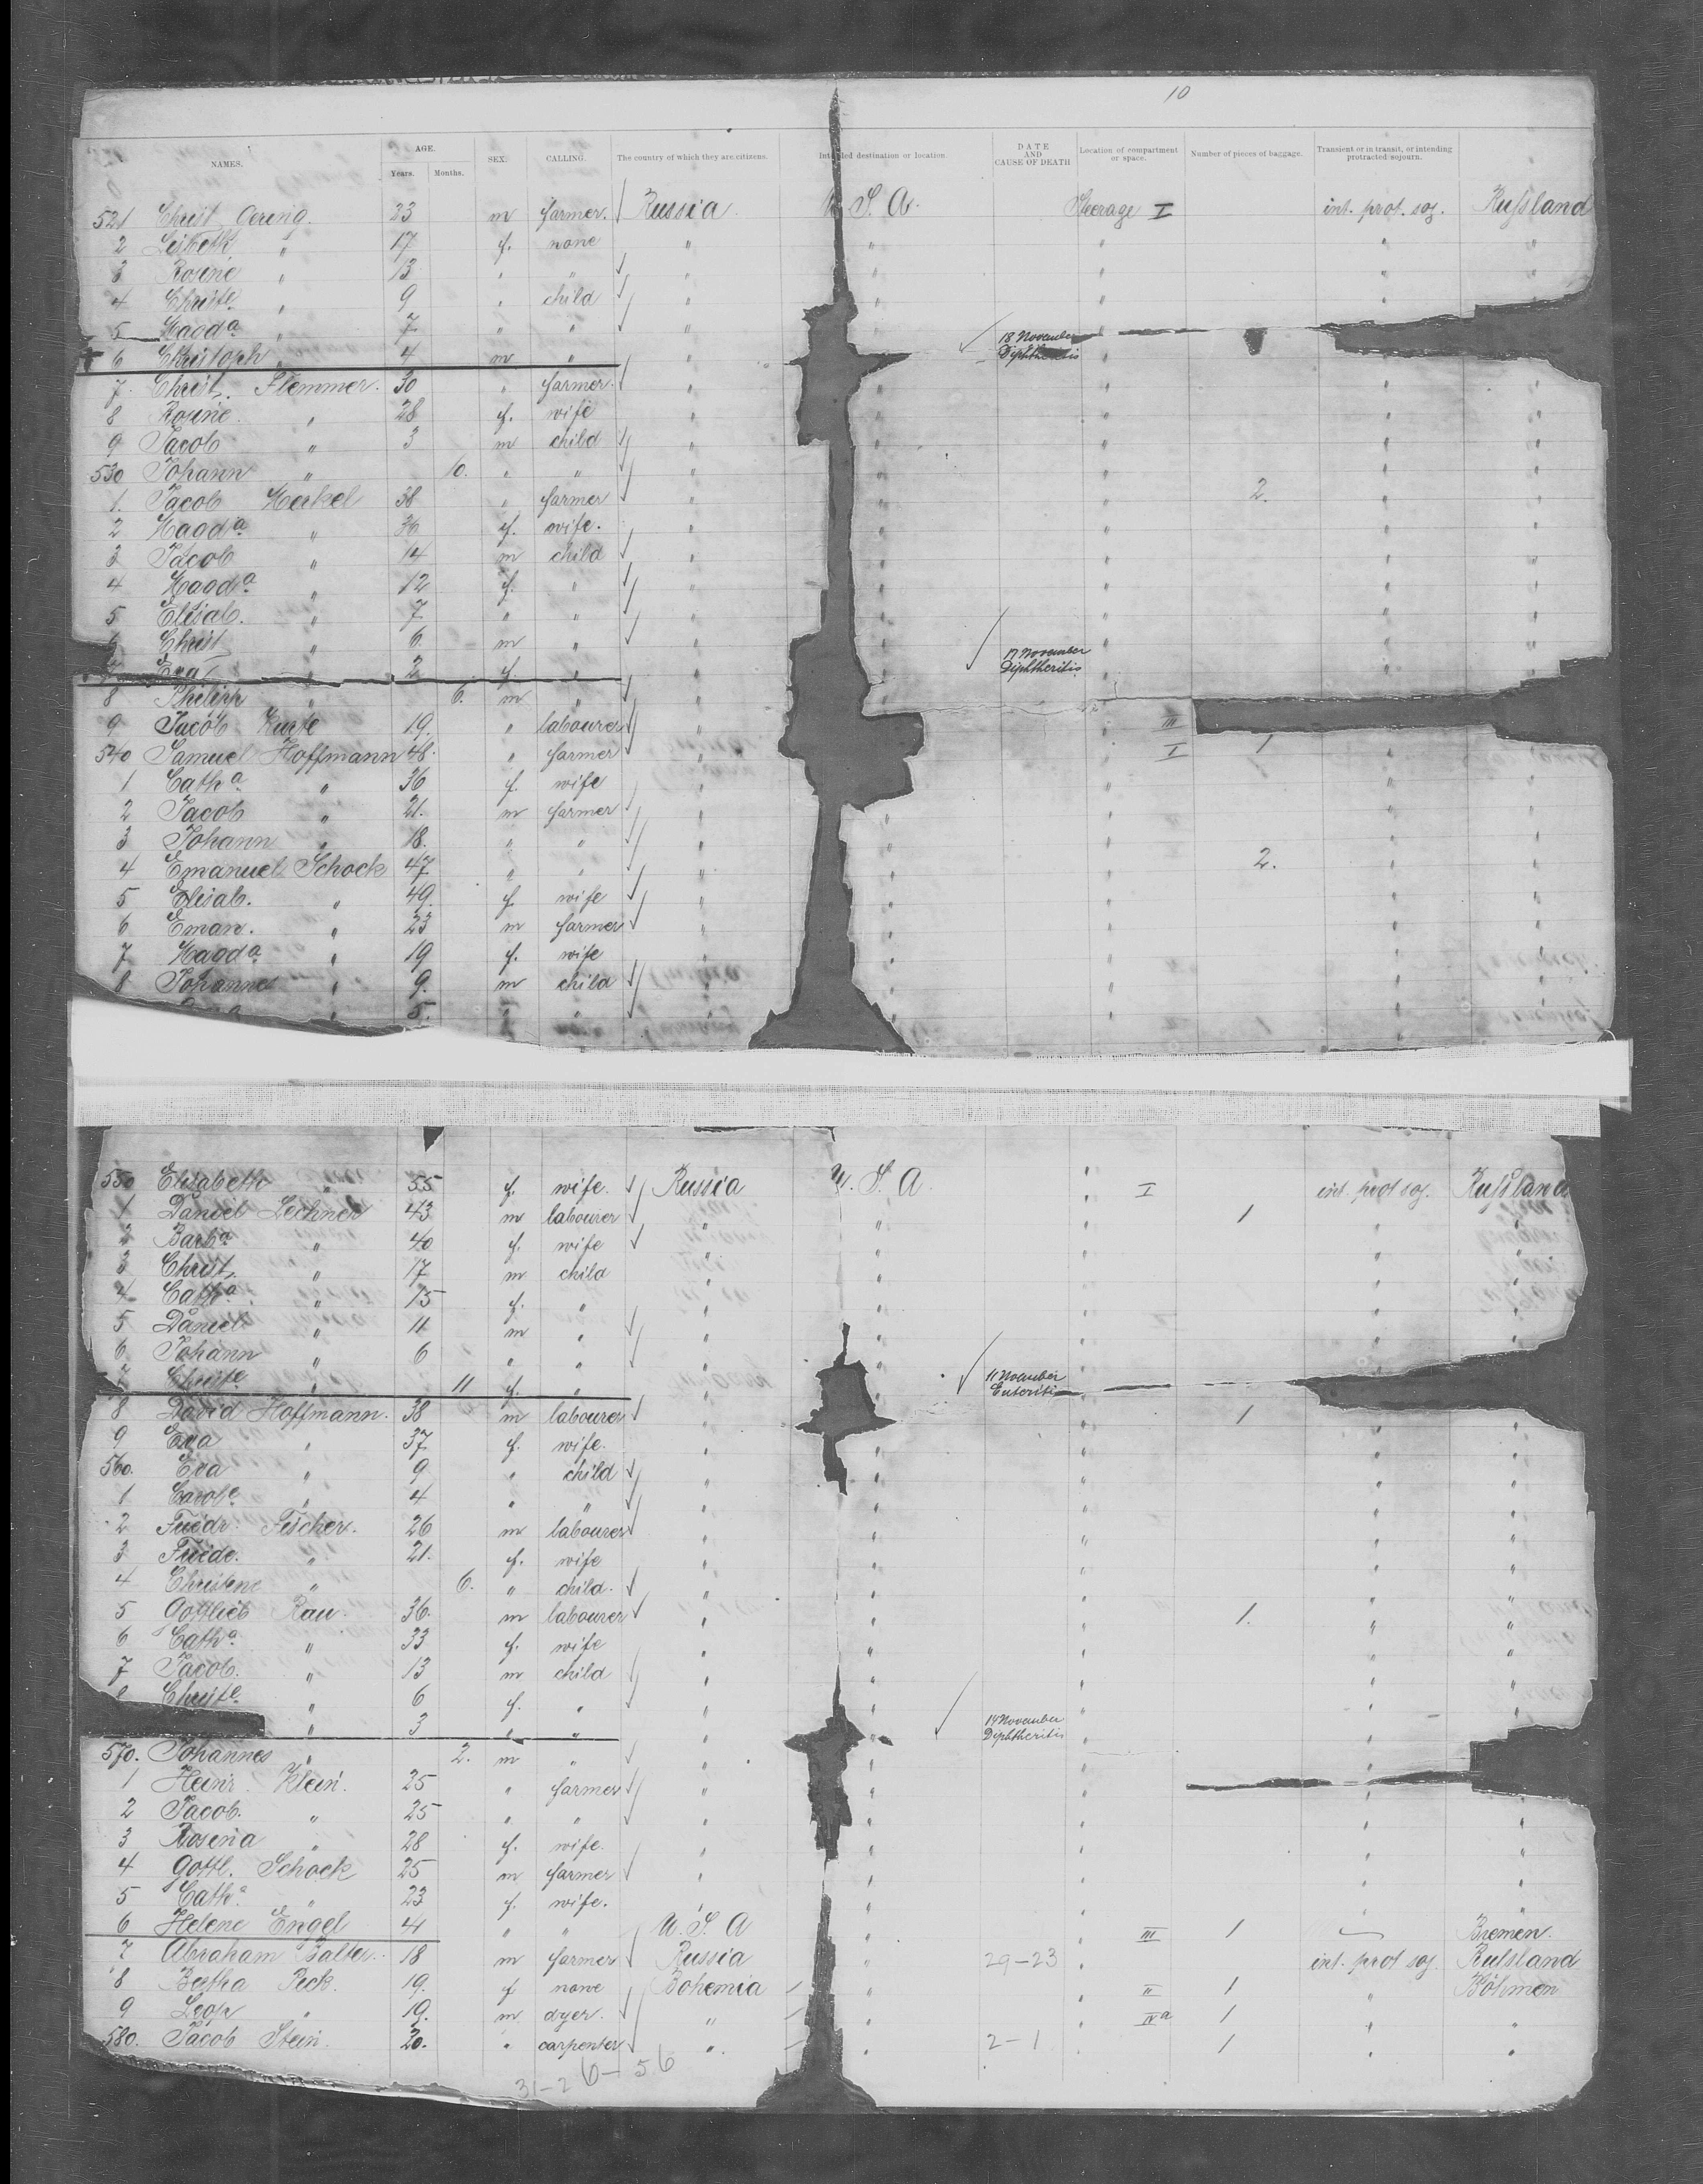 10
NAMES. AGE. Years. Months. SEX. CALLING. The country of which they are citizens. Intended destination or location. DATE AND CAUSE OF DEATH Location of compartment or space. Number of pieces of baggage. Transient or in transit, or intending protracted sojourn.
521 Christ. 23 m farmer. Russia U. S. A. Steerage I int. prot. soj. Rußland
2 " 17 f. none " " " " "
3 Rosine " 13 " " " " " " "
4 Christe " 9 " child " " " "
5 Magda " 7 " " "
6 Christoph " 4 m " " 18 November Diphtheritis "
7. Christ. Flemmer. 30 " farmer. " " " " "
8 Rosine " 28 f. wife " " " " "
9 Jacob " 3 m child " " " "
530 Johann " 10. " " " " " "
1. Jacob Merkel 38 " farmer " " 2. " "
2 Magda " 36 f. wife. " " " "
3 Jacob " 14 m child " " " "
4 Magda " 12 f. " " " " "
5 Elisab. " 7 " " " " " "
6 Christ " 6. m " " " " "
7 Eva " 2 f. " " 17 November Diphtheritis " " "
8 Philipp " 6. m " " "
9 Jacob 19. " labourer " III
540 Samuel Hoffmann 48. " farmer " " I 1 "
1 Catha " 36 f. wife " " " "
2 Jacob " 21. m farmer " " " " "
3 Johann " 18. " " " " " " "
4 Emanuel Schock 47 " " " " " 2. " "
5 Elisab. " 49. f. wife " " " " "
6 Eman. " 23 m farmer " " " " "
7 Magda " 19 f. wife " " " " "
8 Johannes " 9. m child " " " " "
" 5. " " " " " " "
550 Elisabeth " 55 f. wife. Russia U. S. A. " I int. prot soj. Rußland
1 Daniel Lechner 43 m labourer " " " 1 " "
2 Barba " 40 f. wife " " " " "
3 Christ. " 17 m child " " " " "
4 Catha " 15 f. " " " " " "
5 Daniel " 11 m " " " " " "
6 Johann " 6 " " " " " "
7 Christe " 11 f. " " 11 November Enteritis "
8 David Hoffmann. 38 m labourer " " 1 " "
9 Eva " 37 f. wife. " " " " "
560. Eva " 9 " child " " " " "
1 Carole " 4 " " " " " " "
2 Friedr. Fischer. 26 m labourer " " " " "
3 Friede. " 21. f. wife " " " " "
4 Christine " 6. " child. " " " " "
5 Gottlieb Rau. 36. m labourer " " " 1. " "
6 Catha " 33 f. wife " " " " "
7 Jacob. " 13 m child " " " " "
8 Christe. " 6 f. " " " " " "
" 3 " " " " 14 November Diphtheritis " "
570. Johannes " 2. m " " " "
1 Heinr. Klein. 25 " farmer " " " "
2 Jacob. " 25 " " " " " " "
3 Rosina " 28 f. wife. " " " " "
4 Gottl. Schock 25 m farmer " " " " "
5 Catha " 23 f. wife. " " " " "
6 Helene Engel 41 " " U. S. A " " III 1 Bremen.
7 Abraham 18 m farmer Russia " 29-23 " int. prot soj. Rußland
8 Bertha Pick. 19. f none Bohemia " " II 1 " Böhmen
9 Leop. " 19. m dyer. " " " IVa 1 " "
580. Jacob Stein. 20. " carpenter " " 2-1 " 1 " "
31-2 6-56